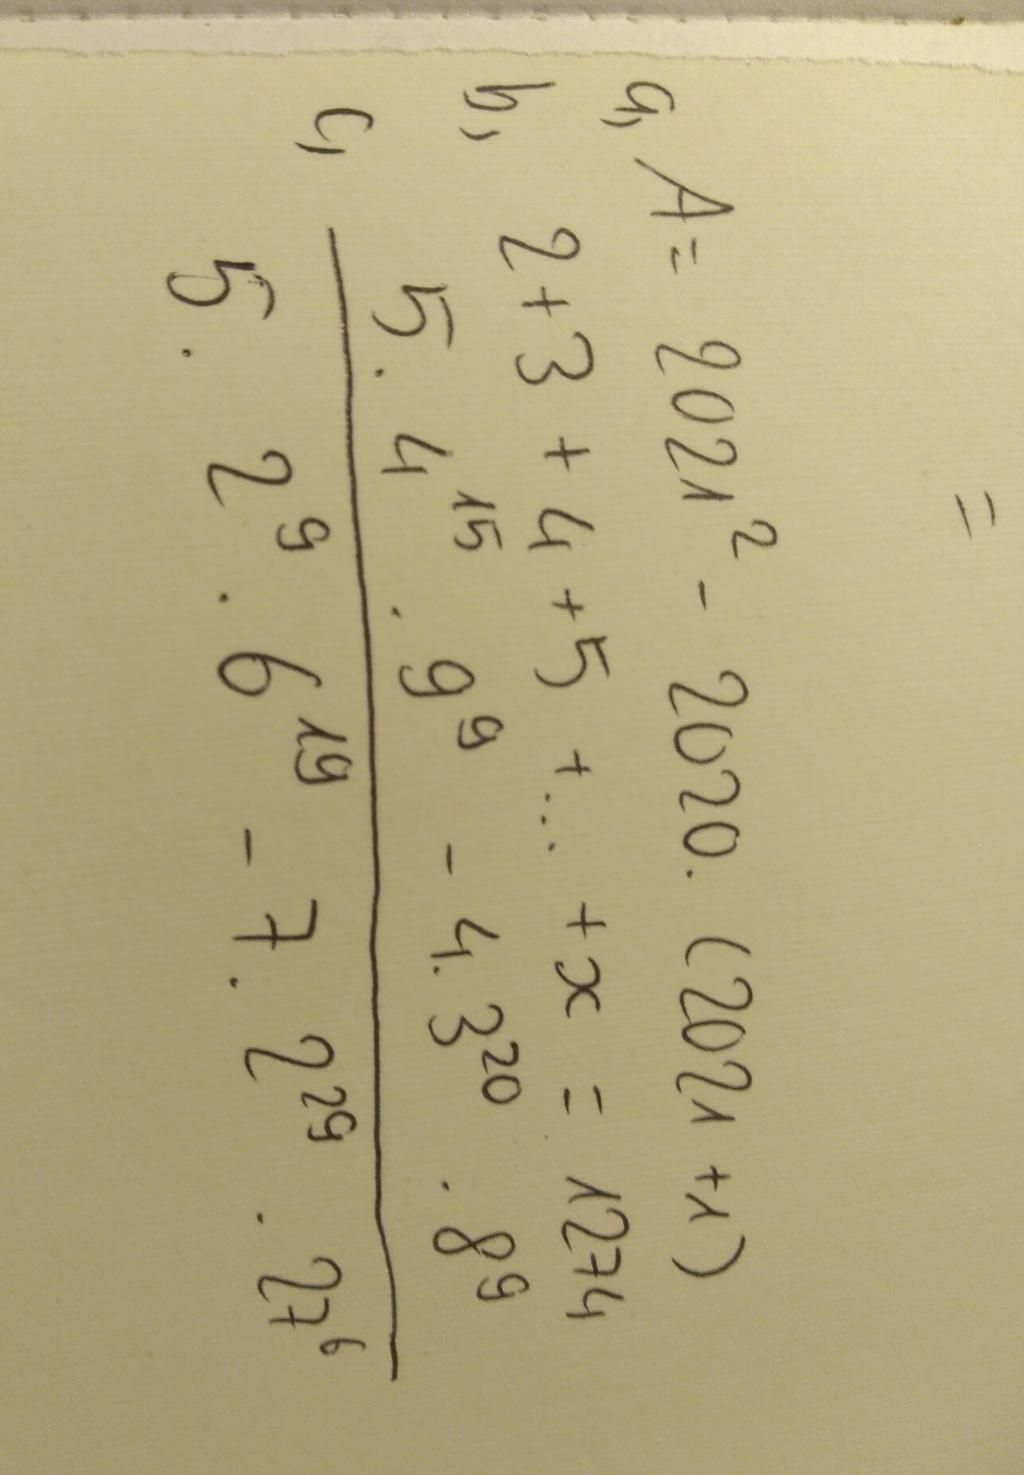 =
a, A = 2021² - 2020. (2021 + 1)
b, 2 + 3 + 4 + 5 + ... + x = 1274
c, 5 . 4¹⁵ . 9⁹ - 4. 3²⁰ . 8⁹
5 . 2⁹ . 6¹⁹ - 7 . 2²⁹ . 27⁶